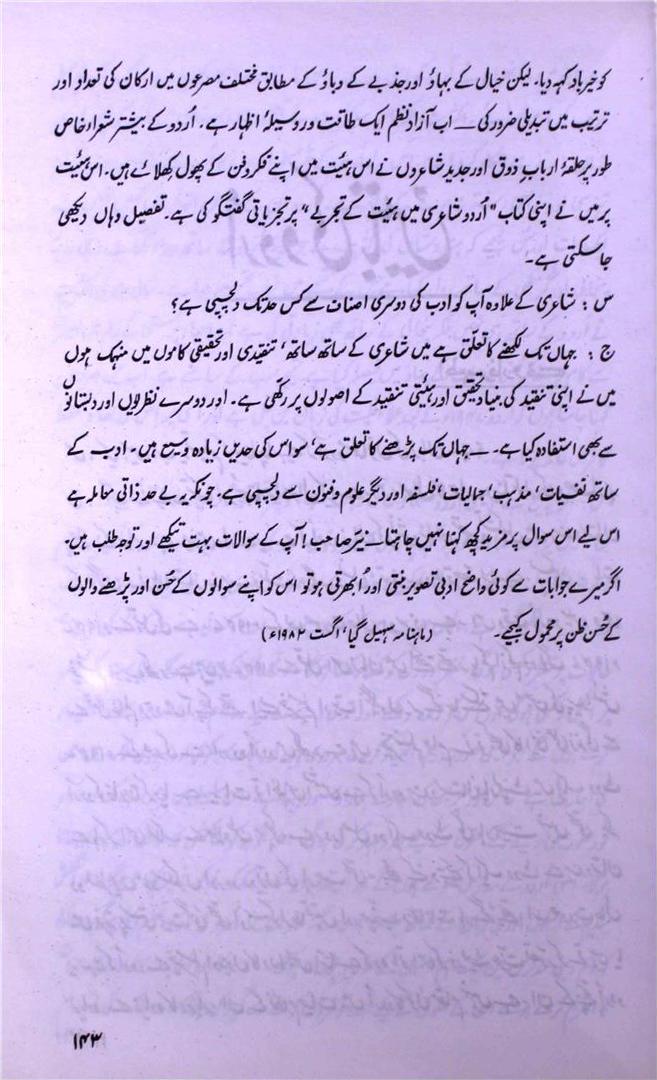 کو خیرباد کہہ دیا۔ لیکن خیال کے بہاؤ اور جذبے کے دباؤ کے مطابق مختلف مصرعوں میں ارکان کی تعداد اور
ترتیب میں تبدیلی ضرور کی ــ اب آزاد نظم ایک طاقت ور وسیلۂ اظہار ہے۔ اُردو کے بیشتر شعراء خاص
طور پر حلقۂ اربابِ ذوق اور جدید شاعروں نے اس ہیئت میں اپنے فکر و فن کے پھول کھلائے ہیں۔ اس ہیئت
پر میں نے اپنی کتاب "اُردو شاعری میں ہیئت کے تجربے" پر تجزیاتی گفتگو کی ہے۔ تفصیل وہاں دیکھی
جا سکتی ہے۔
س : شاعری کے علاوہ آپ کو ادب کی دوسری اصناف سے کس حد تک دلچسپی ہے؟
ج : جہاں تک لکھنے کا تعلق ہے میں شاعری کے ساتھ ساتھ، تنقیدی اور تحقیقی کاموں میں منہمک ہوں
میں نے اپنی تنقید کی بنیاد تحقیق اور ہیئتی تنقید کے اصولوں پر رکھی ہے۔ اور دوسرے نظریوں اور دبستانوں
سے بھی استفادہ کیا ہے۔ ــ جہاں تک پڑھنے کا تعلق ہے، سو اس کی حدیں زیادہ وسیع ہیں۔ ادب کے
ساتھ نفسیات، مذہب، جمالیات، فلسفہ اور دیگر علوم و فنون سے دلچسپی ہے۔ چونکہ یہ بے حد ذاتی معاملہ ہے
اس لیے اس سوال پر مزید کچھ کہنا نہیں چاہتا ــ نیّر صاحب! آپ کے سوالات بہت تیکھے اور توجہ طلب ہیں۔
اگر میرے جوابات سے کوئی واضح ادبی تصویر بنتی اور اُبھرتی ہو تو اس کو اپنے سوالوں کے حُسن اور پڑھنے والوں
کے حُسنِ ظن پر محمول کیجیے۔ (ماہنامہ سہیل گیا، اگست ۱۹۸۲ء)
۱۴۳